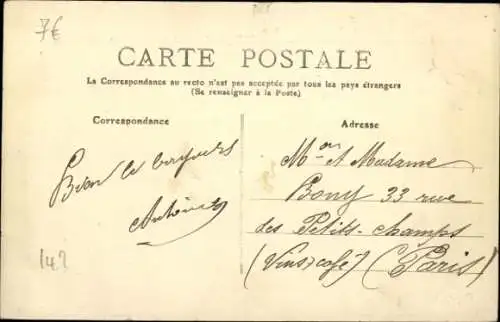 7€
CARTE POSTALE
La Correspondance au recto n'est pas acceptée par tous les pays étrangers
(Se renseigner à la Poste)
Correspondance
Adresse
Bien le bonjours
Mon et Madame
Bony 33 rue
des Petits-champs
(Vins & café) (Paris)
142